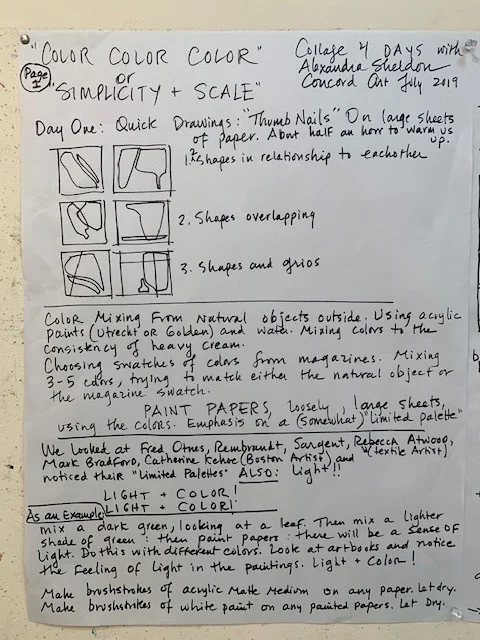 "COLOR COLOR COLOR"
or
"SIMPLICITY + SCALE"
Page 1
Collage 4 DAYS with
Alexandra Sheldon
Concord Art July 2019
Day One: Quick Drawings: "Thumb Nails" On large sheets
of paper. About half an hour to warm us
up.
1. 2 Shapes in relationship to eachother
2. Shapes overlapping
3. Shapes and grids
Color Mixing From Natural objects outside. Using acrylic
paints (Utrecht OR Golden) and water. Mixing colors to the
consistency of heavy cream.
Choosing swatches of colors from magazines. Mixing
3-5 colors, trying to match either the natural object or
the magazine swatch.
PAINT PAPERS, loosely, large sheets,
using the colors. Emphasis on a (somewhat) "limited palette"
We looked at Fred Otnes, Rembrandt, Sargent, Rebecca Atwood,
(textile Artist)
Mark Bradford, Catherine Kehoe (Boston Artist) and
noticed their "Limited Palettes" ALSO: Light!!
LIGHT + COLOR!
LIGHT + COLOR!
As an Example:
mix a dark green, looking at a leaf. Then mix a lighter
shade of green: then paint papers: there will be a sense of
light. Do this with different colors. Look at artbooks and notice
the feeling of Light in the paintings. Light + Color!
Make brushstrokes of acrylic Matte Medium on any paper. Let dry.
Make brushstrokes of white paint on any painted papers. Let Dry.